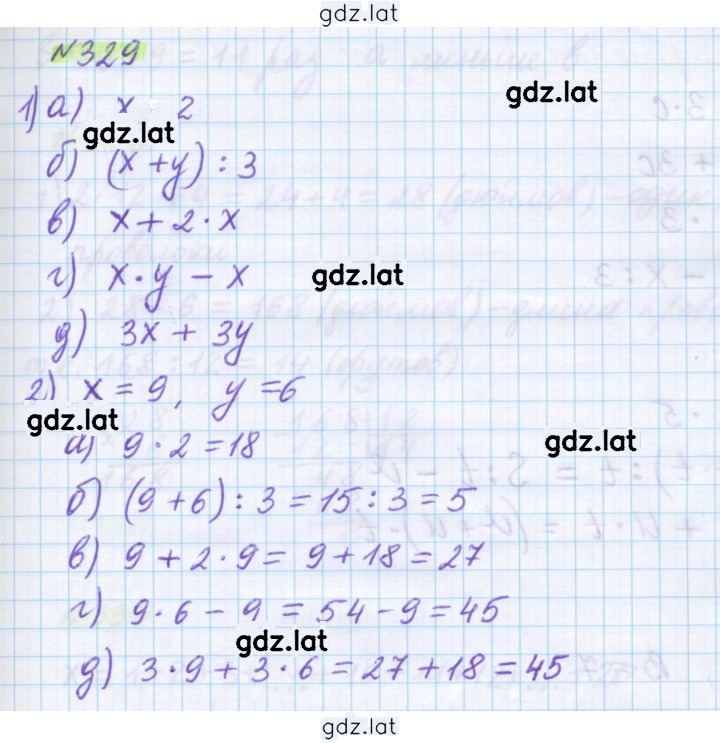 gdz.lat
№329
gdz.lat
1) а) x 2
gdz.lat
б) (x+y) : 3
в) x + 2 · x
г) x · y – x
gdz.lat
д) 3x + 3y
2) x = 9, y = 6
gdz.lat
а) 9 · 2 = 18
gdz.lat
б) (9 + 6) : 3 = 15 : 3 = 5
в) 9 + 2 · 9 = 9 + 18 = 27
г) 9 · 6 – 9 = 54 – 9 = 45
gdz.lat
д) 3 · 9 + 3 · 6 = 27 + 18 = 45
gdz.lat